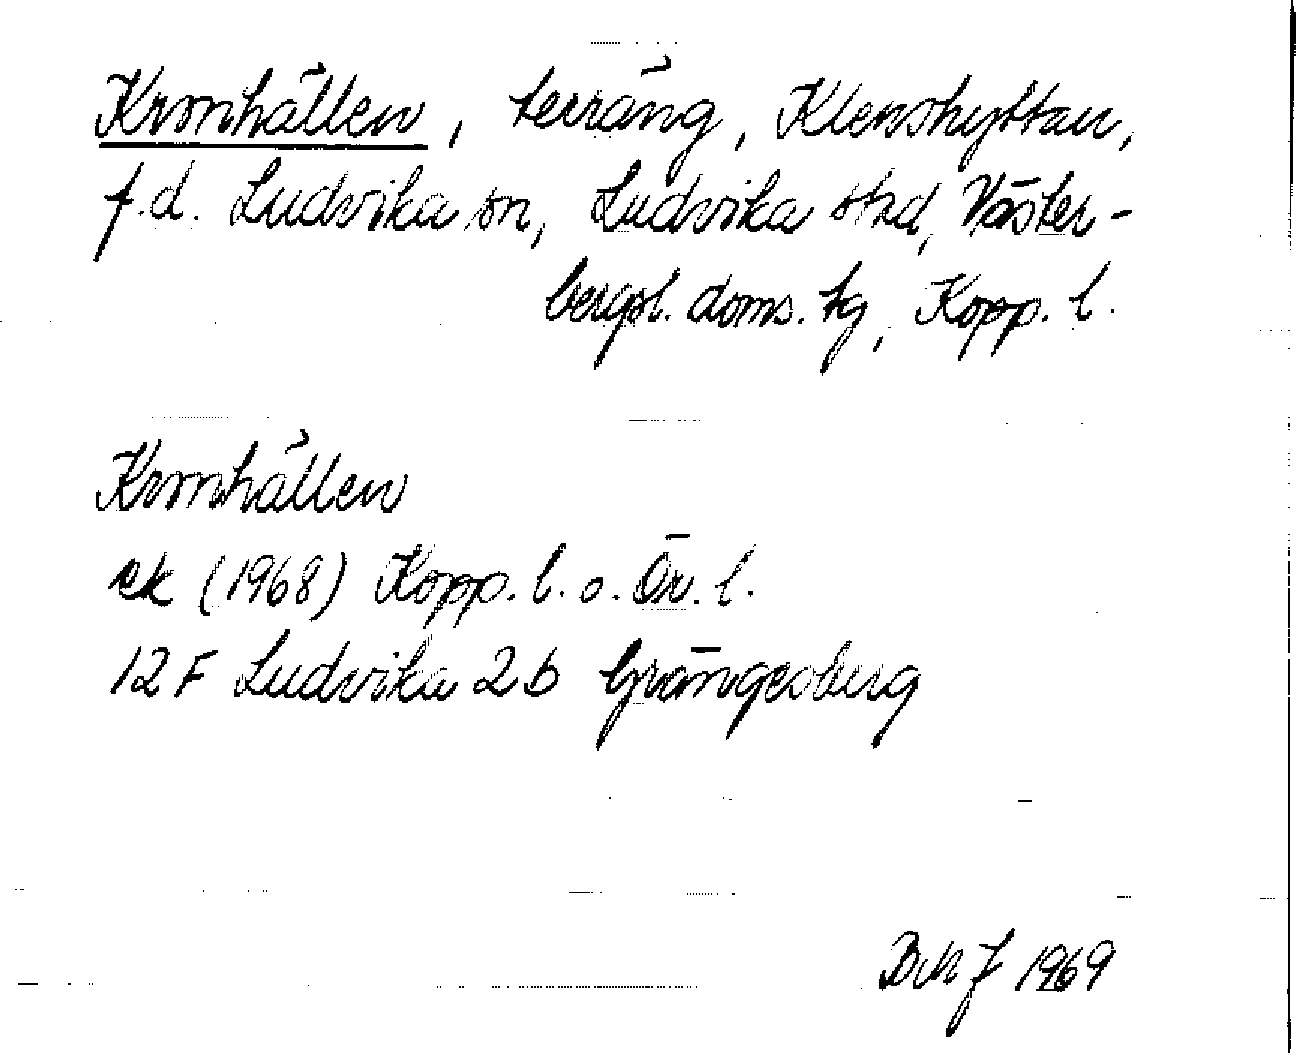 Kronhällen, terräng, Klenshyttan,
f.d. Ludvika sn, Ludvika stad, Väster-
bergsl. doms. tg, Kopp. l.
Kronhällen
ek (1968) Kopp. l. o. Ör. l.
12 F Ludvika 2b Grängesberg
1969